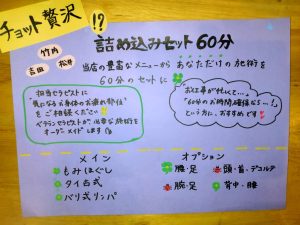 チョット贅沢!?
竹内
吉田 松井
詰め込みセット60分
当店の豊富なメニューから あなただけの施術を
60分のセットに
担当セラピストに
"気になるお身体のお疲れ部位"
をご相談ください
ベテランセラピストが、必要な施術を
オーダーメイドします
お仕事が忙しくて…
"60分のお時間確保なら…!"
という方に、おすすめです
メイン
もみほぐし
タイ古式
バリ式リンパ
オプション
腰・足
頭・首・デコルテ
腕・足
背中・腰